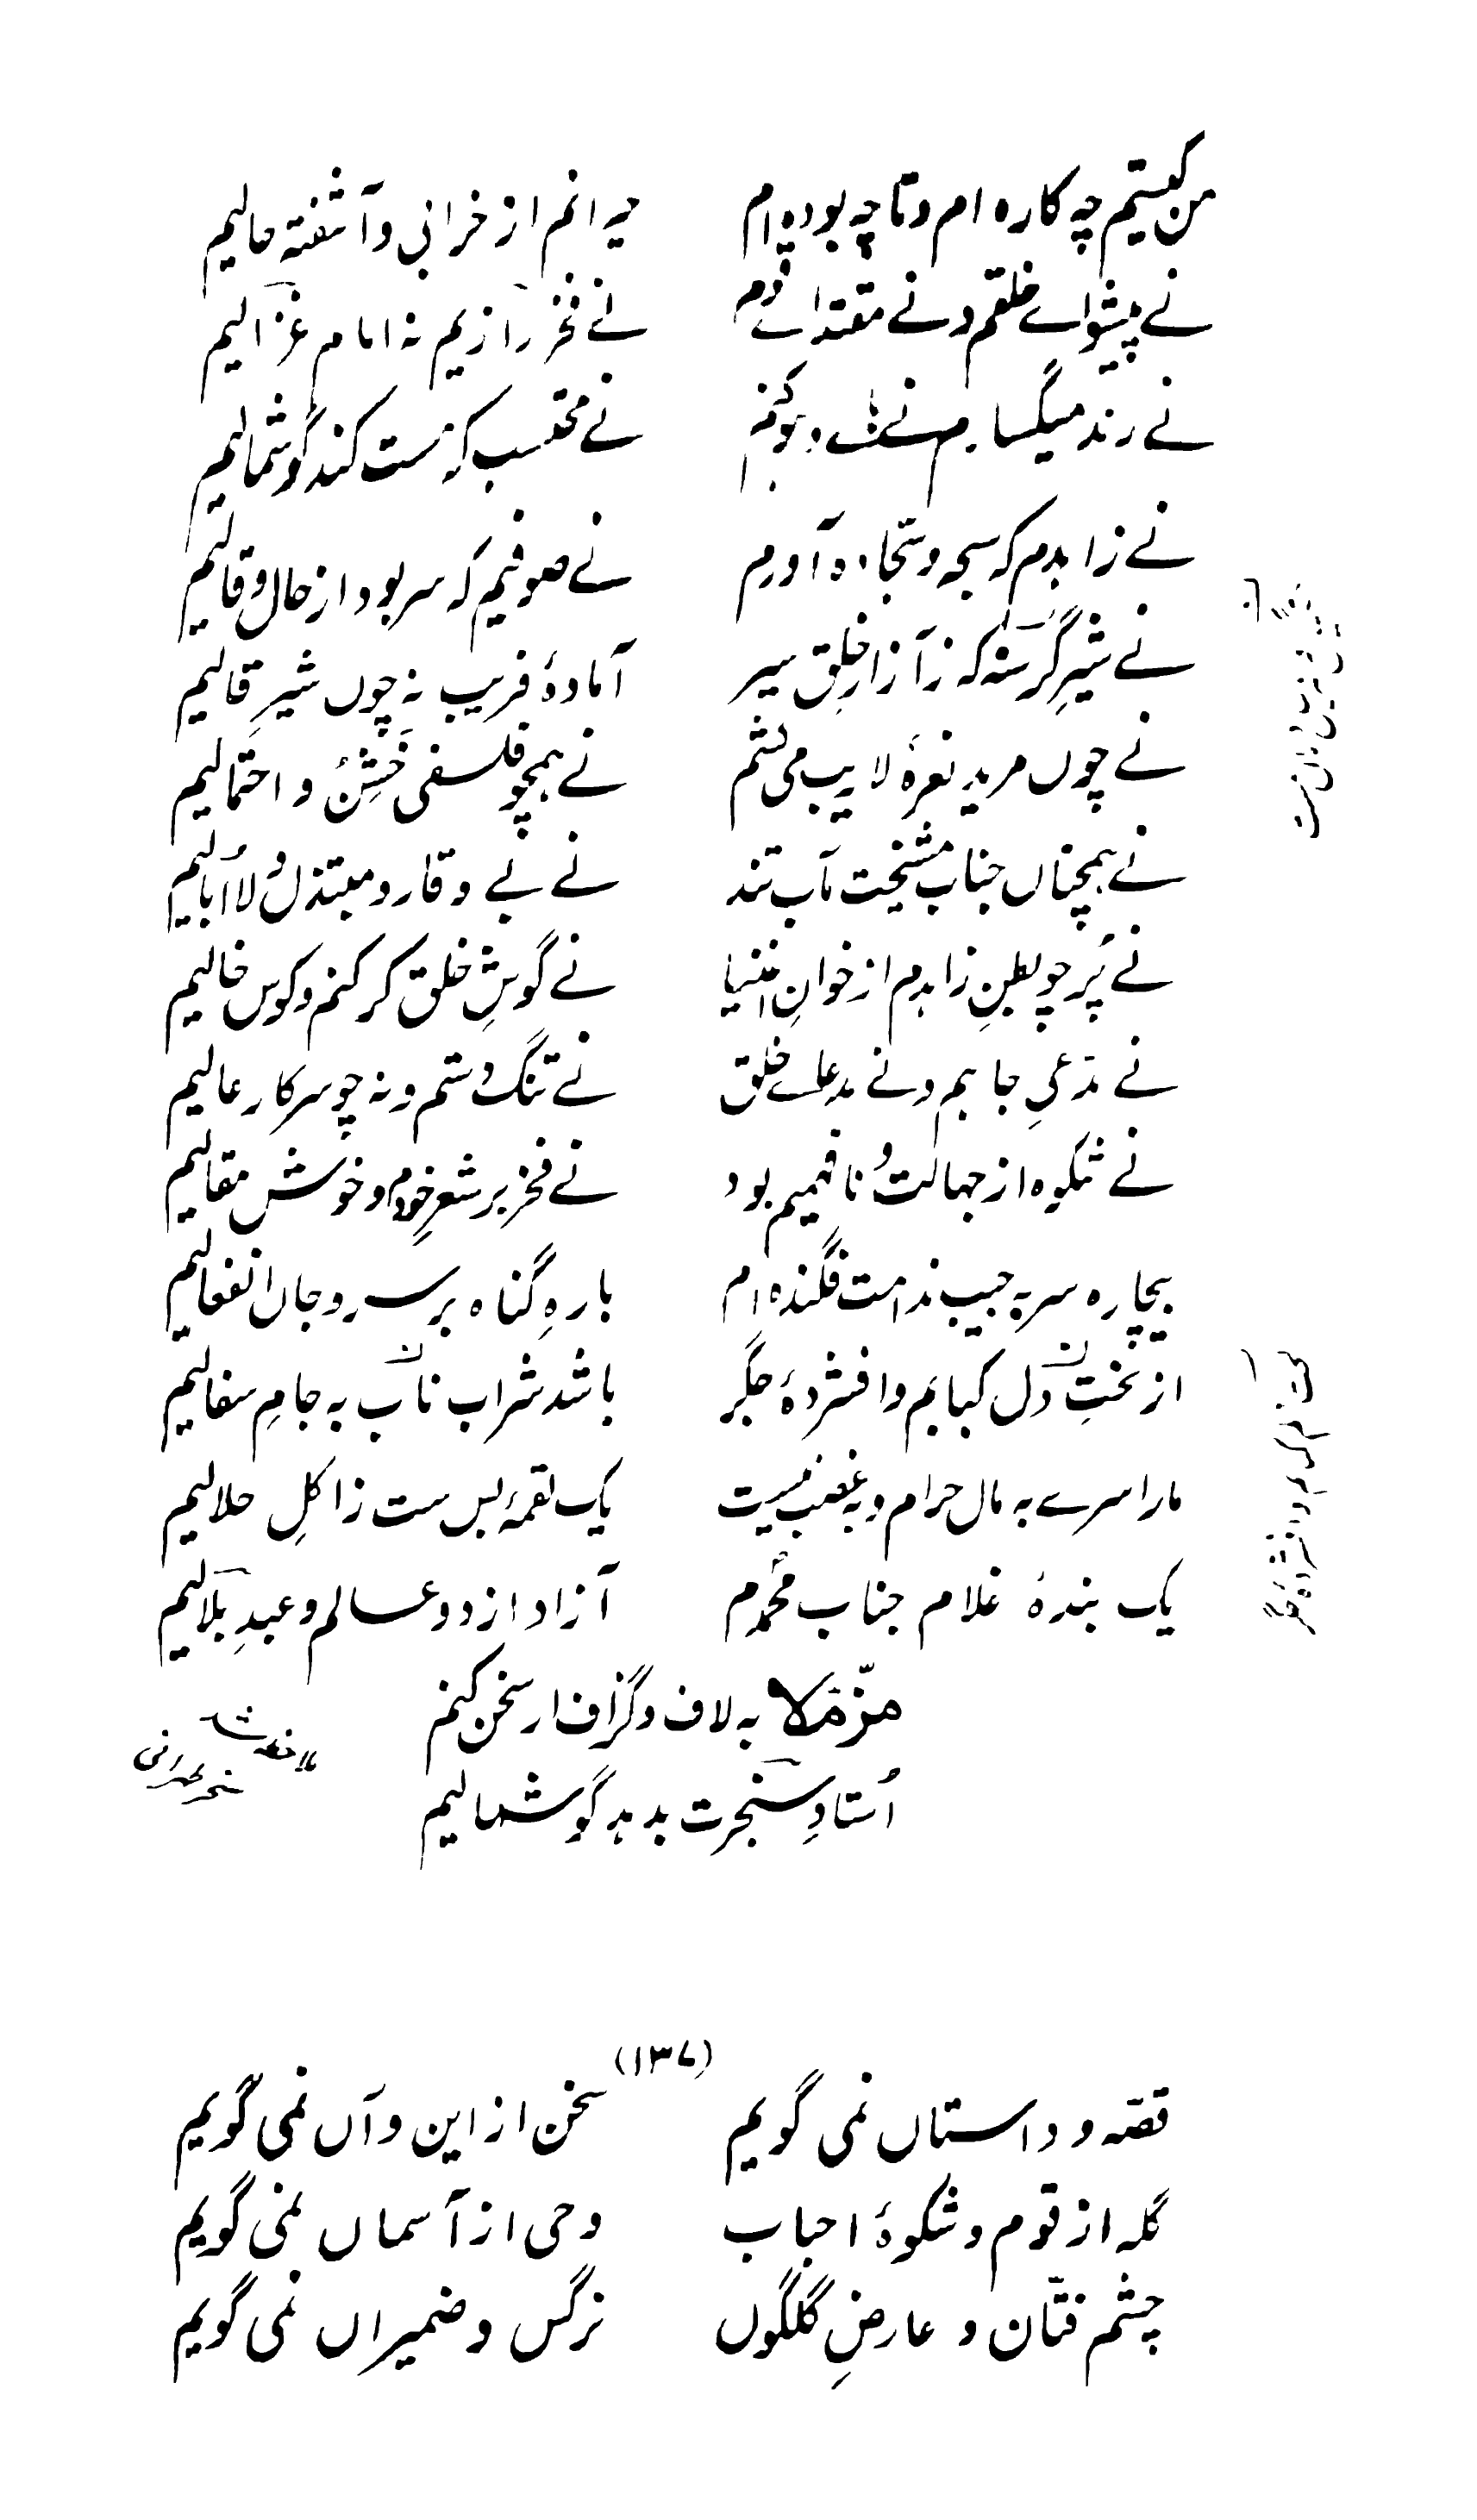 من کیستم چه کاره ام و تا چه بوده ام حیرانم از خرابی و آشفتہ حالیم
نے پیشواے خلقم و نے مقتداے قوم نے فخر رازیم نہ امام غزالیم
نے رند نے محتسب کہ مست کند گوشمالیم
نے زاہدم کہ سبحہ و سجادہ آورم نے صوفیم کہ سر بود از حال و قالیم
نے شیرِ گرسنہ کہ ز آزارِ خلق سیر آمادۂ فریب نہ چوں شیرِ قالیم
نے چوں مرید نعرۂ لاریب می کشم نے ہمچو فلسفی خَشِنُ و احتمالیم
نے ہمچناں جناب مشیخت مآب تند نے بے وقار و مبتذل و لا ابالیم
نے پُر چو بطنِ زاہدم از خوانِ اغنیا نے گوشِ خلق کر کنم و کوس خالیم
نے مدعیِ جاہم و نے مدعاے خلق نے تنگ دستم و نہ چو سرکار عالیم
نے شکوہ از جہالت و نافہیم بود نے فخر بر شعرِ خودم و خوش مقالیم
بیچارہ سر بہ جیب ندامت فگندہ ام بارہِ گناہ بر سر و جاں انفعالیم
از لختِ دل کبابم و افشردۂ جگر باشد شراب ناب بہ جامِ سفالیم
مارا سرے بہ مال حرام و بہ غصب نیست یک لقمہ بس ست ز اکلِ حلالیم
یک بندۂ غلام جناب محمدم آزاد از دو عالم و عبدِ بلالیم
منّزہ بہ لاف و گزاف ار سخن کنم
اُستادِ سنجرت بدہد گوشمالیم
(۱۳۷)
قصّہ و داستاں نمی گویم سخن از این و آں نمی گویم
گلہ از قوم و شکوۂ احباب وحی از آسماں نمی گویم
چشم فتّان و عارضِ گلگوں نرگس و ضمیراں نمی گویم